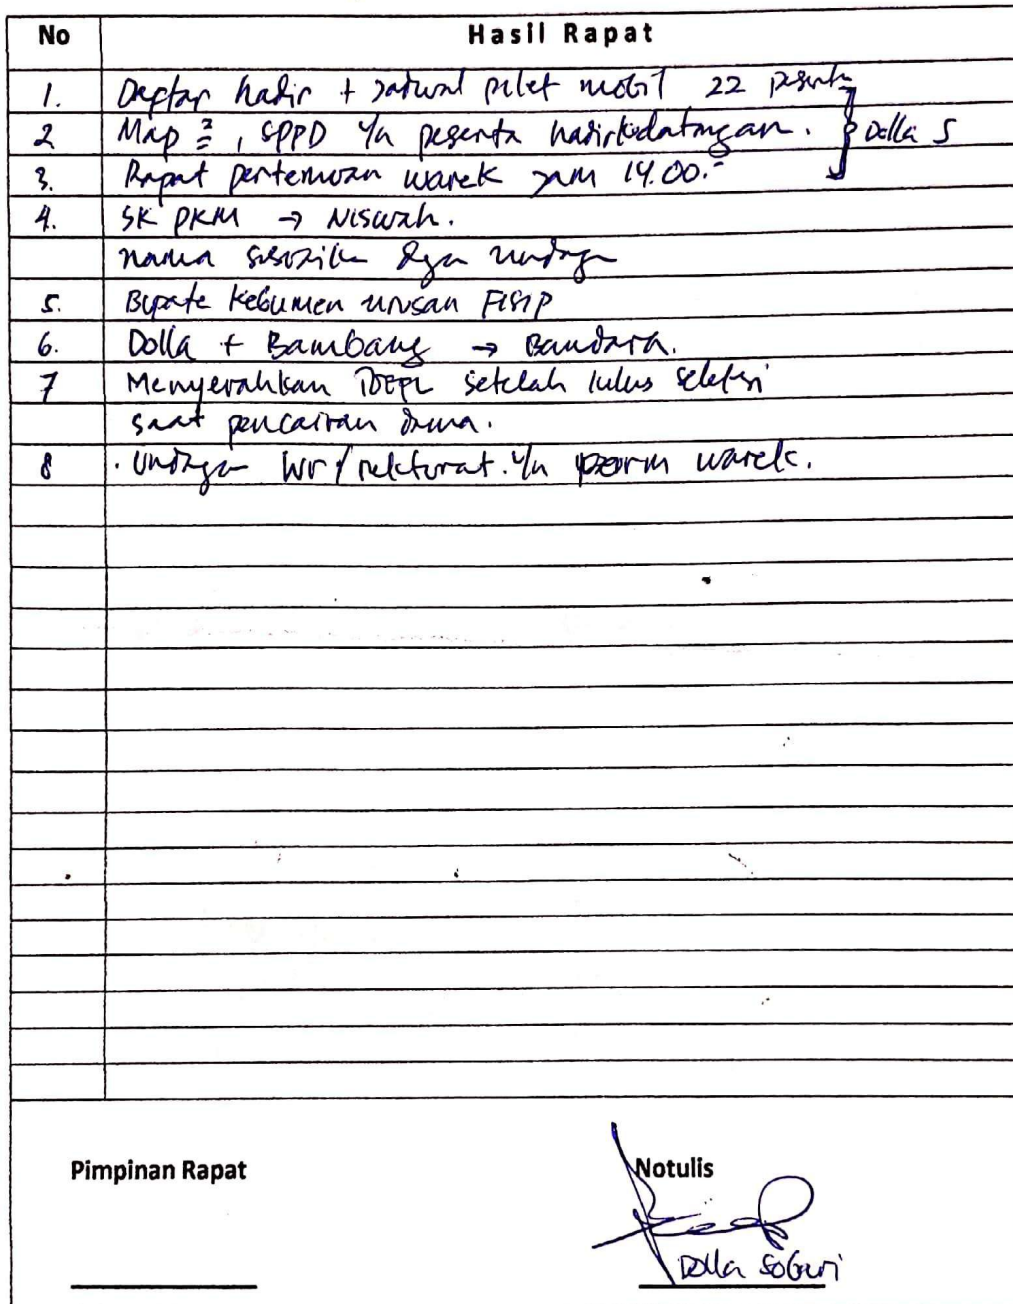 No Hasil Rapat
1. Daftar hadir + jadwal piket mobil 22 peserta
2 Map 2, SPPD u/ peserta hadir kedatangan. Dolla S
3. Rapat pertemuan warek jam 14.00.-
4. SK PKM → Niswah.
nama sesuaikan dgn undangan
5. Bupate Kebumen urusan FISIP
6. Dolla + Bambang → Bandara.
7 Menyerahkan setelah lulus seleksi
saat pencairan dana.
8 . Undangan WR / rektorat. u/n warek.
Pimpinan Rapat Notulis
Dolla Sobari